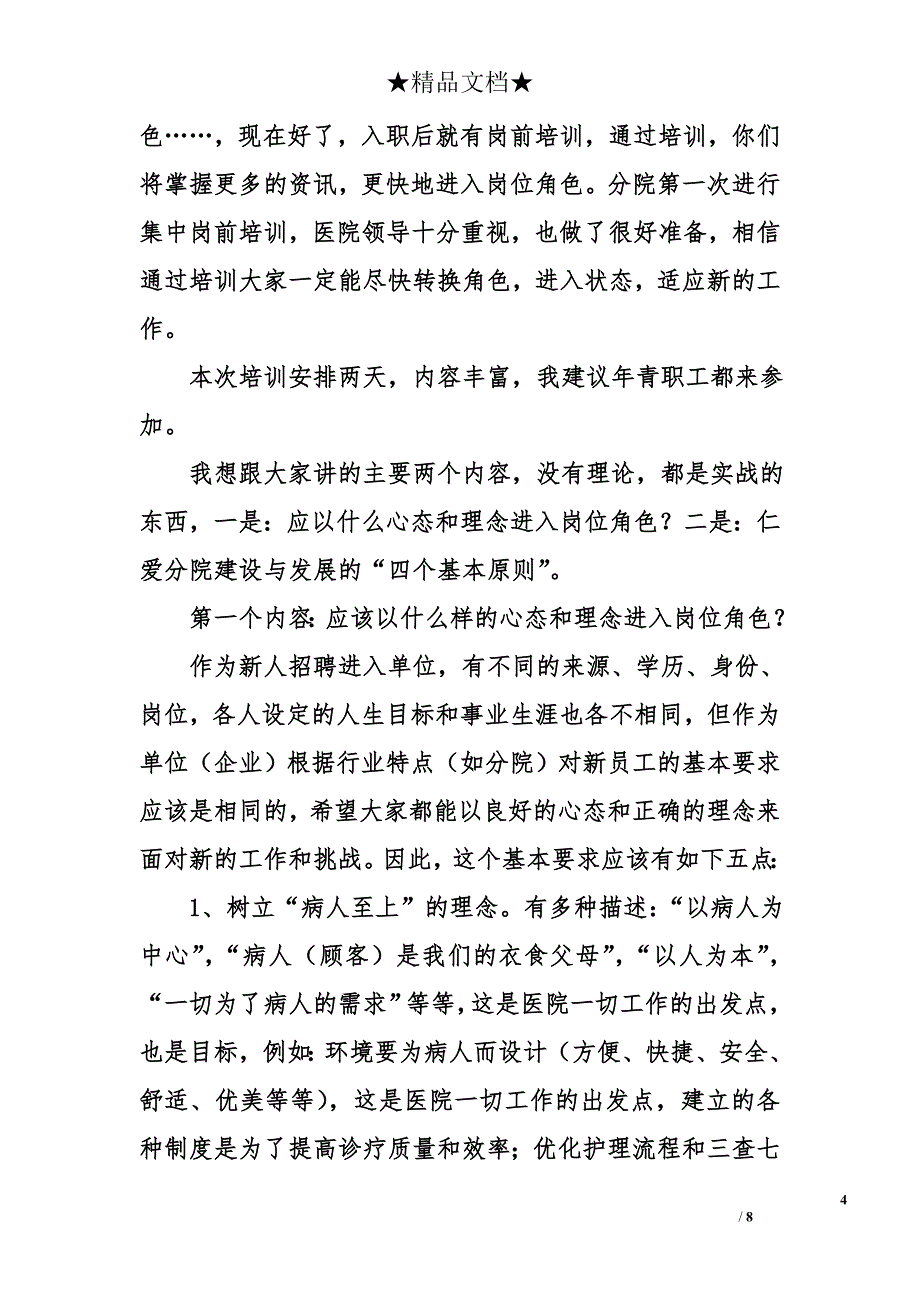 ★精品文档★
色……，现在好了，入职后就有岗前培训，通过培训，你们
将掌握更多的资讯，更快地进入岗位角色。分院第一次进行
集中岗前培训，医院领导十分重视，也做了很好准备，相信
通过培训大家一定能尽快转换角色，进入状态，适应新的工
作。
本次培训安排两天，内容丰富，我建议年青职工都来参
加。
我想跟大家讲的主要两个内容，没有理论，都是实战的
东西，一是：应以什么心态和理念进入岗位角色？二是：仁
爱分院建设与发展的“四个基本原则”。
第一个内容：应该以什么样的心态和理念进入岗位角色？
作为新人招聘进入单位，有不同的来源、学历、身份、
岗位，各人设定的人生目标和事业生涯也各不相同，但作为
单位（企业）根据行业特点（如分院）对新员工的基本要求
应该是相同的，希望大家都能以良好的心态和正确的理念来
面对新的工作和挑战。因此，这个基本要求应该有如下五点：
1、树立“病人至上”的理念。有多种描述：“以病人为
中心”，“病人（顾客）是我们的衣食父母”，“以人为本”，
“一切为了病人的需求”等等，这是医院一切工作的出发点，
也是目标，例如：环境要为病人而设计（方便、快捷、安全、
舒适、优美等等），这是医院一切工作的出发点，建立的各
种制度是为了提高诊疗质量和效率；优化护理流程和三查七
4
/ 8